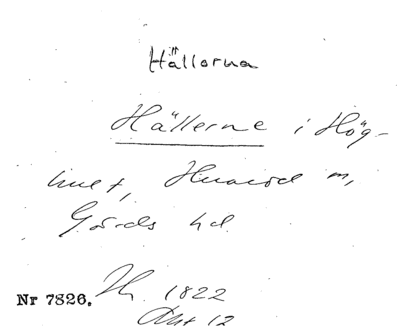 Hällorna
Hällerne i Hög-
hult, Huaröd m,
Gärds hd.
Nr 7826. Th. 1822
Akt 12